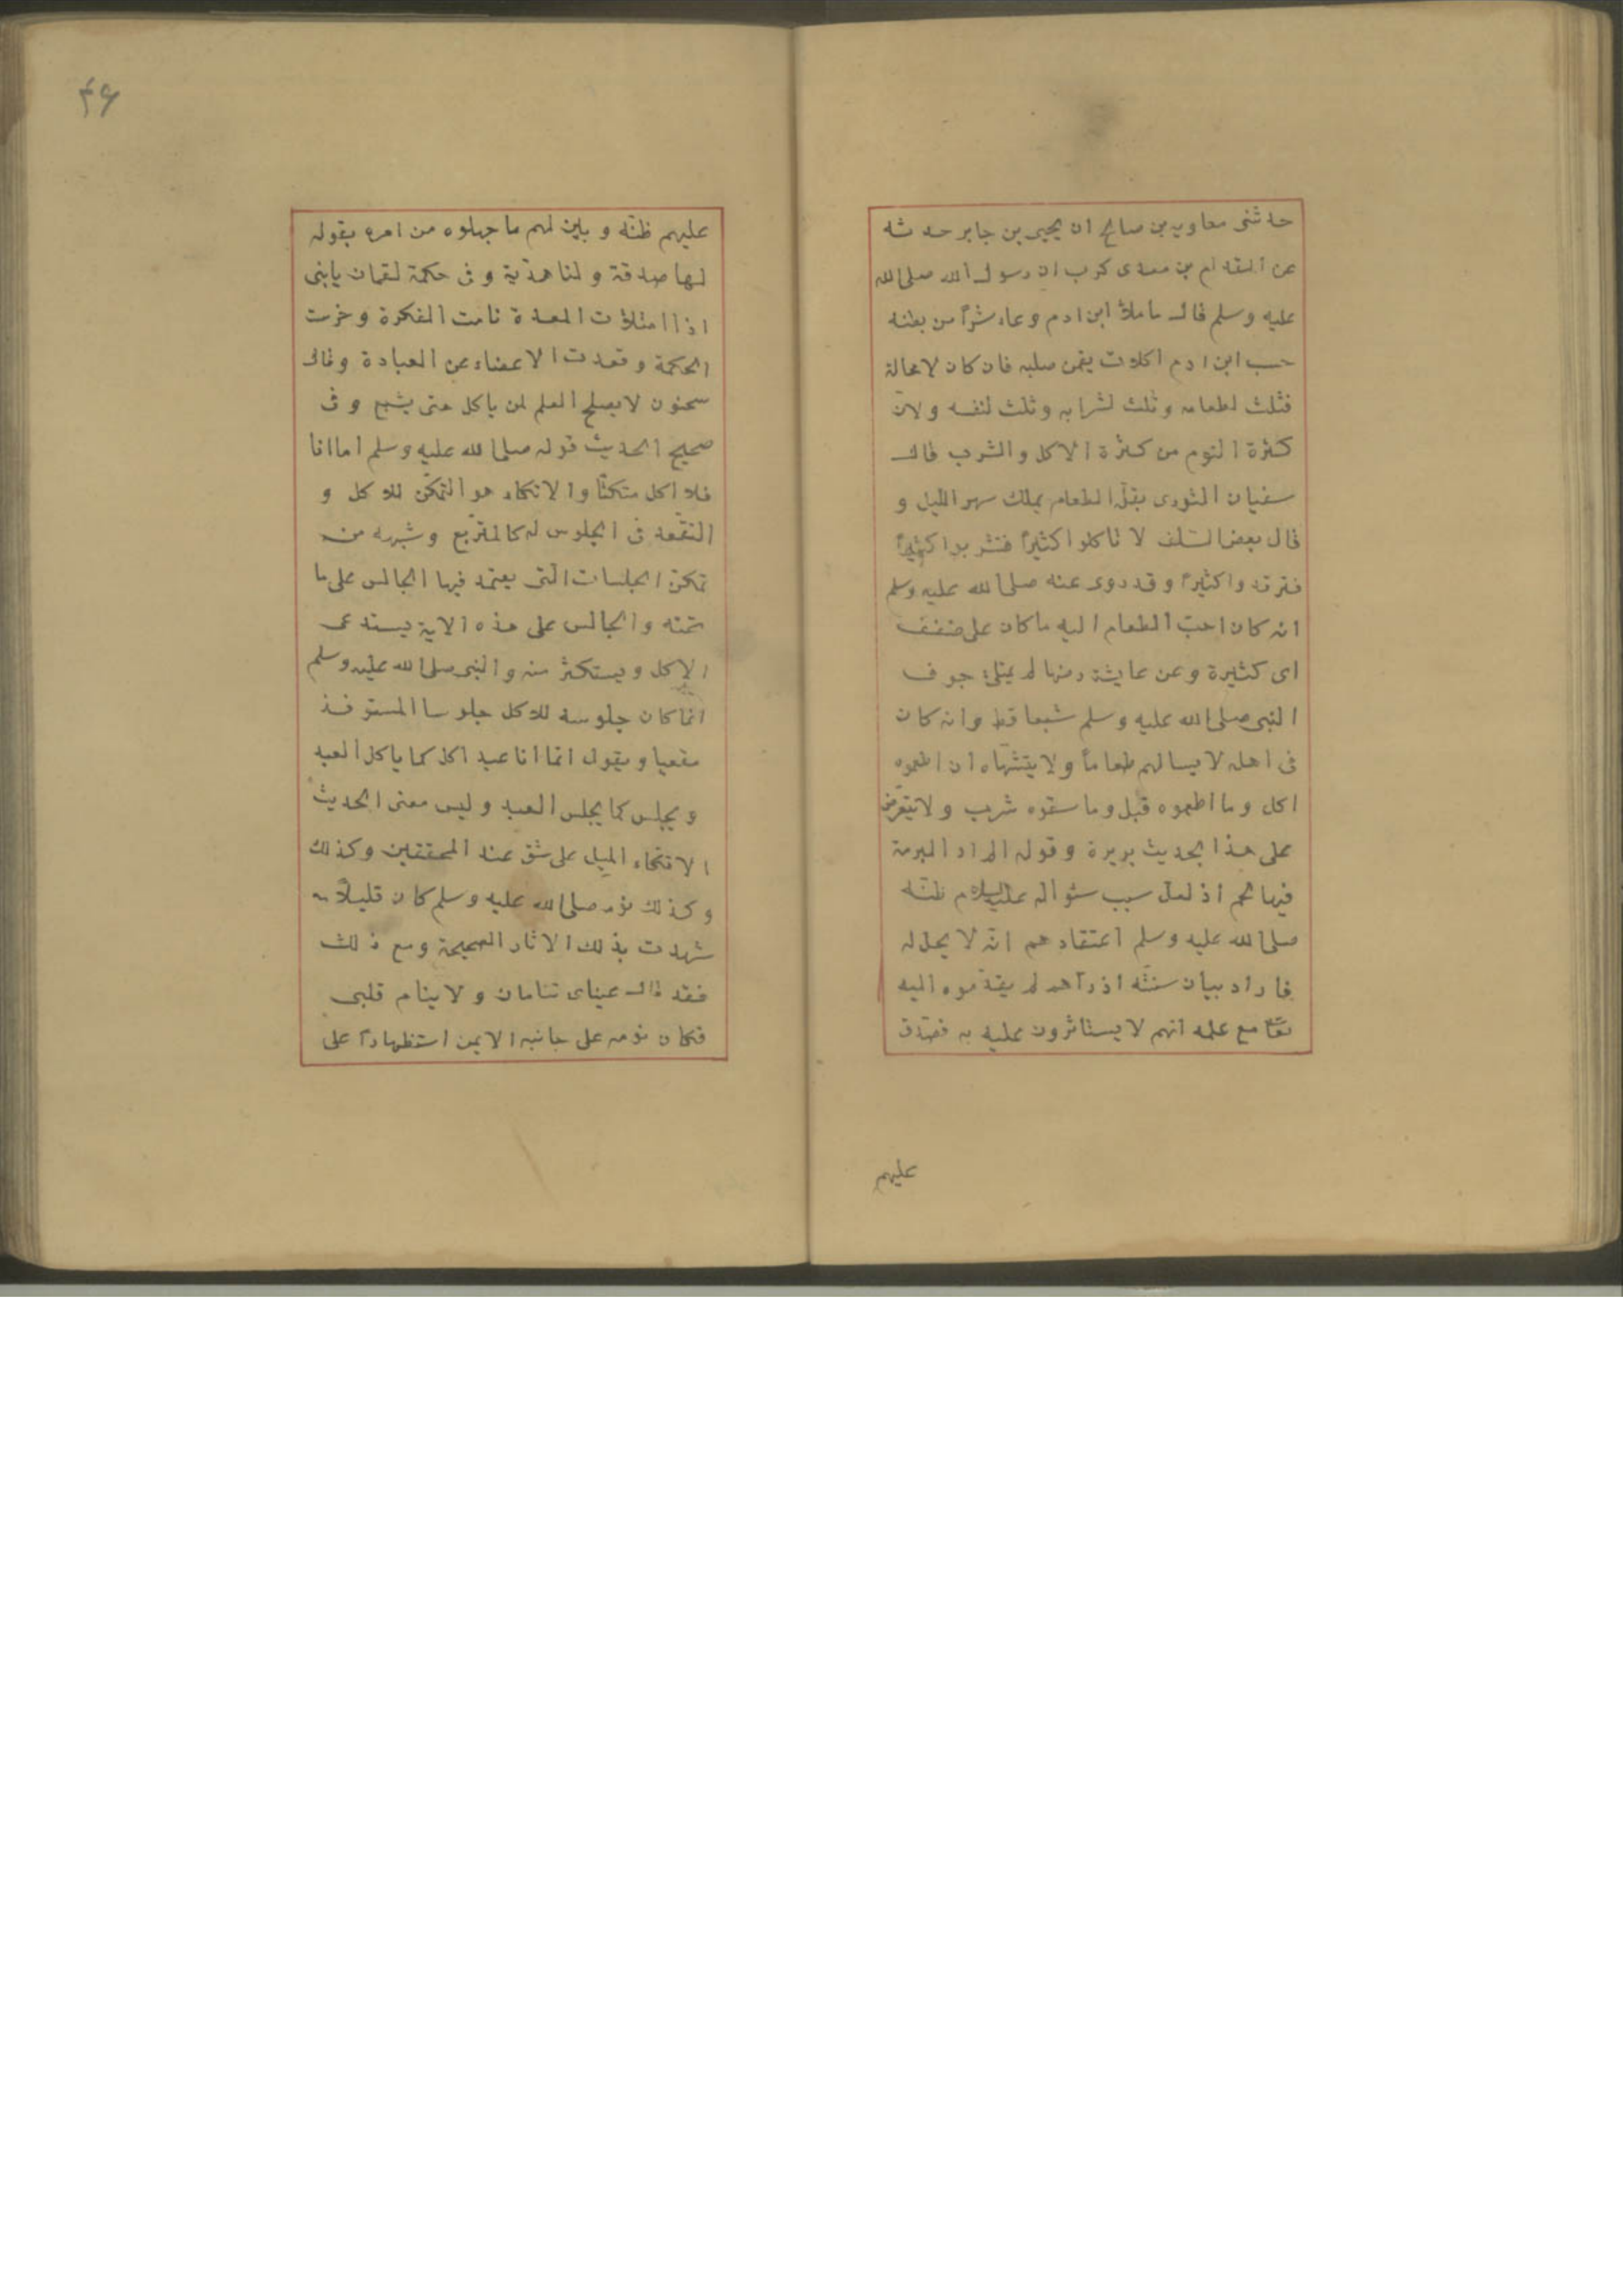 حدثنى معاوية بن صالح ان يحيى بن جابر حدثه
عن المقدام بن معدى كرب ان رسول الله صلى الله
عليه وسلم قال ما ملأ ابن ادم وعاء شرًا من بطنه
حسب ابن ادم اكلات يقمن صلبه فان كان لا محالة
فثلث لطعامه وثلث لشرابه وثلث لنفسه ولانّ
كثرة النوم من كثرة الاكل والشرب قال
سفيان الثورى بقلّة الطعام يملك سهر الليل و
قال بعض السّلف لا تاكلوا كثيرًا فتشربوا كثيرًا
فترقدوا كثيرًا وقد روى عنه صلى الله عليه وسلم
انه كان احبّ الطعام اليه ما كان على ضفف
اى كثيرة وعن عايشة رضها لم يمتلئ جوف
النبى صلى الله عليه وسلم شبعا قط وانه كان
فى اهله لا يسالهم طعاماً ولا يتشهّاه ان اطعموه
اكل وما اطعموه قبل وما سقوه شرب ولا يتعرض
على هذا الحديث بريرة وقوله الم ار البرمة
فيها لحم اذ لعل سبب سئواله عليه السلام ظنّه
صلى الله عليه وسلم اعتقادهم انّه لا يحل له
فاراد بيان سنته اذ رآهم لم يقدّموه اليه
مع علمه انهم لا يستاثرون عليه به فصدق
عليهم
۴۶
عليهم ظنّه وبين لهم ما جهلوه من امره بقوله
لها صدقة ولنا هديّة وفى حكمة لقمان يابنى
اذا امتلأت المعدة نامت الفكرة وخرست
الحكمة وقعدت الاعضاء عن العبادة وقال
سحنون لا يصلح العلم لمن ياكل حتى يشبع وفى
صحيح الحديث قوله صلى الله عليه وسلم اما انا
فلا اكل متكئًا والاتكاء هو التمكّن للاكل و
التقعد فى الجلوس له كالمتربع وشبهه من
تمكن الجلسات التى يعتمد فيها الجالس على ما
تحته والجالس على هذه الاية يستدعى
الاكل ويستكثر منه والنبى صلى الله عليه وسلم
انّما كان جلوسه للاكل جلوسا المستوفز
مقعيا ويقول انّما انا عبد اكل كما ياكل العبد
ويجلس كما يجلس العبد وليس معنى الحديث
الاتكاء الميل على شق عند المحققين وكذلك
وكذلك نومه صلى الله عليه وسلم كان قليلاً
شهدت بذلك الاثار الصحيحة ومع ذلك
فقد قال عيناى تنامان ولا ينام قلبى
فكان نومه على جانبه الايمن استظهارًا على